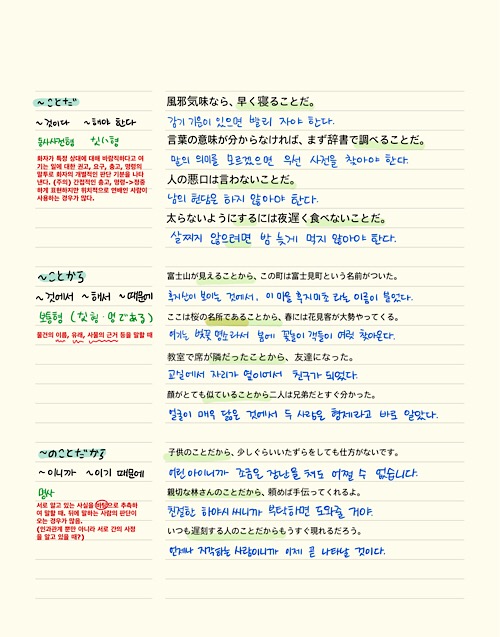 ~ことだ
~것이다 ~해야 한다
동사사전형 ない형
화자가 특정 상대에 대해 바람직하다고 여
기는 일에 대한 권고, 요구, 충고, 명령의
말투로 화자의 개별적인 판단 기분을 나타
낸다. (주의) 간접적인 충고, 명령->정중
하게 표현하지만 위치적으로 연배인 사람이
사용하는 경우가 많다.
風邪気味なら、早く寝ることだ。
감기 기운이 있으면 빨리 자야 한다.
言葉の意味が分からなければ、まず辞書で調べることだ。
말의 의미를 모르겠으면 우선 사전을 찾아야 한다.
人の悪口は言わないことだ。
남의 험담은 하지 않아야 한다.
太らないようにするには夜遅く食べないことだ。
살찌지 않으려면 밤 늦게 먹지 않아야 한다.
~ことから
~것에서 ~해서 ~때문에
보통형 (な형·명である)
물건의 이름, 유래, 사물의 근거 등을 말할 때
富士山が見えることから、この町は富士見町という名前がついた。
후지산이 보이는 것에서, 이 마을 후지미쵸 라는 이름이 붙었다.
ここは桜の名所であることから、春には花見客が大勢やってくる。
여기는 벚꽃 명소라서 봄에 꽃놀이 객들이 여럿 찾아온다.
教室で席が隣だったことから、友達になった。
교실에서 자리가 옆이어서 친구가 되었다.
顔がとても似ていることから二人は兄弟だとすぐ分かった。
얼굴이 매우 닮은 것에서 두 사람은 형제라고 바로 알았다.
~のことだから
~이니까 ~이기 때문에
명사
서로 알고 있는 사실을 바탕으로 추측하
여 말할 때. 뒤에 말하는 사람의 판단이
오는 경우가 많음.
(인과관계 뿐만 아니라 서로 간의 사정
을 알고 있을 때?)
子供のことだから、少しぐらいいたずらをしても仕方がないです。
어린 아이니까 조금은 장난을 쳐도 어쩔 수 없습니다.
親切な林さんのことだから、頼めば手伝ってくれるよ。
친절한 하야시 씨니까 부탁하면 도와줄 거야.
いつも遅刻する人のことだからもうすぐ現れるだろう。
언제나 지각하는 사람이니까 이제 곧 나타날 것이다.